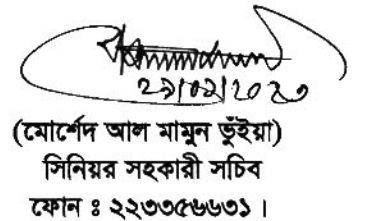 ২৯/০৯/২০২৩
(মোর্শেদ আল মামুন ভুঁইয়া)
সিনিয়র সহকারী সচিব
ফোন ঃ ২২৩৩৫৬৬৩১ ।